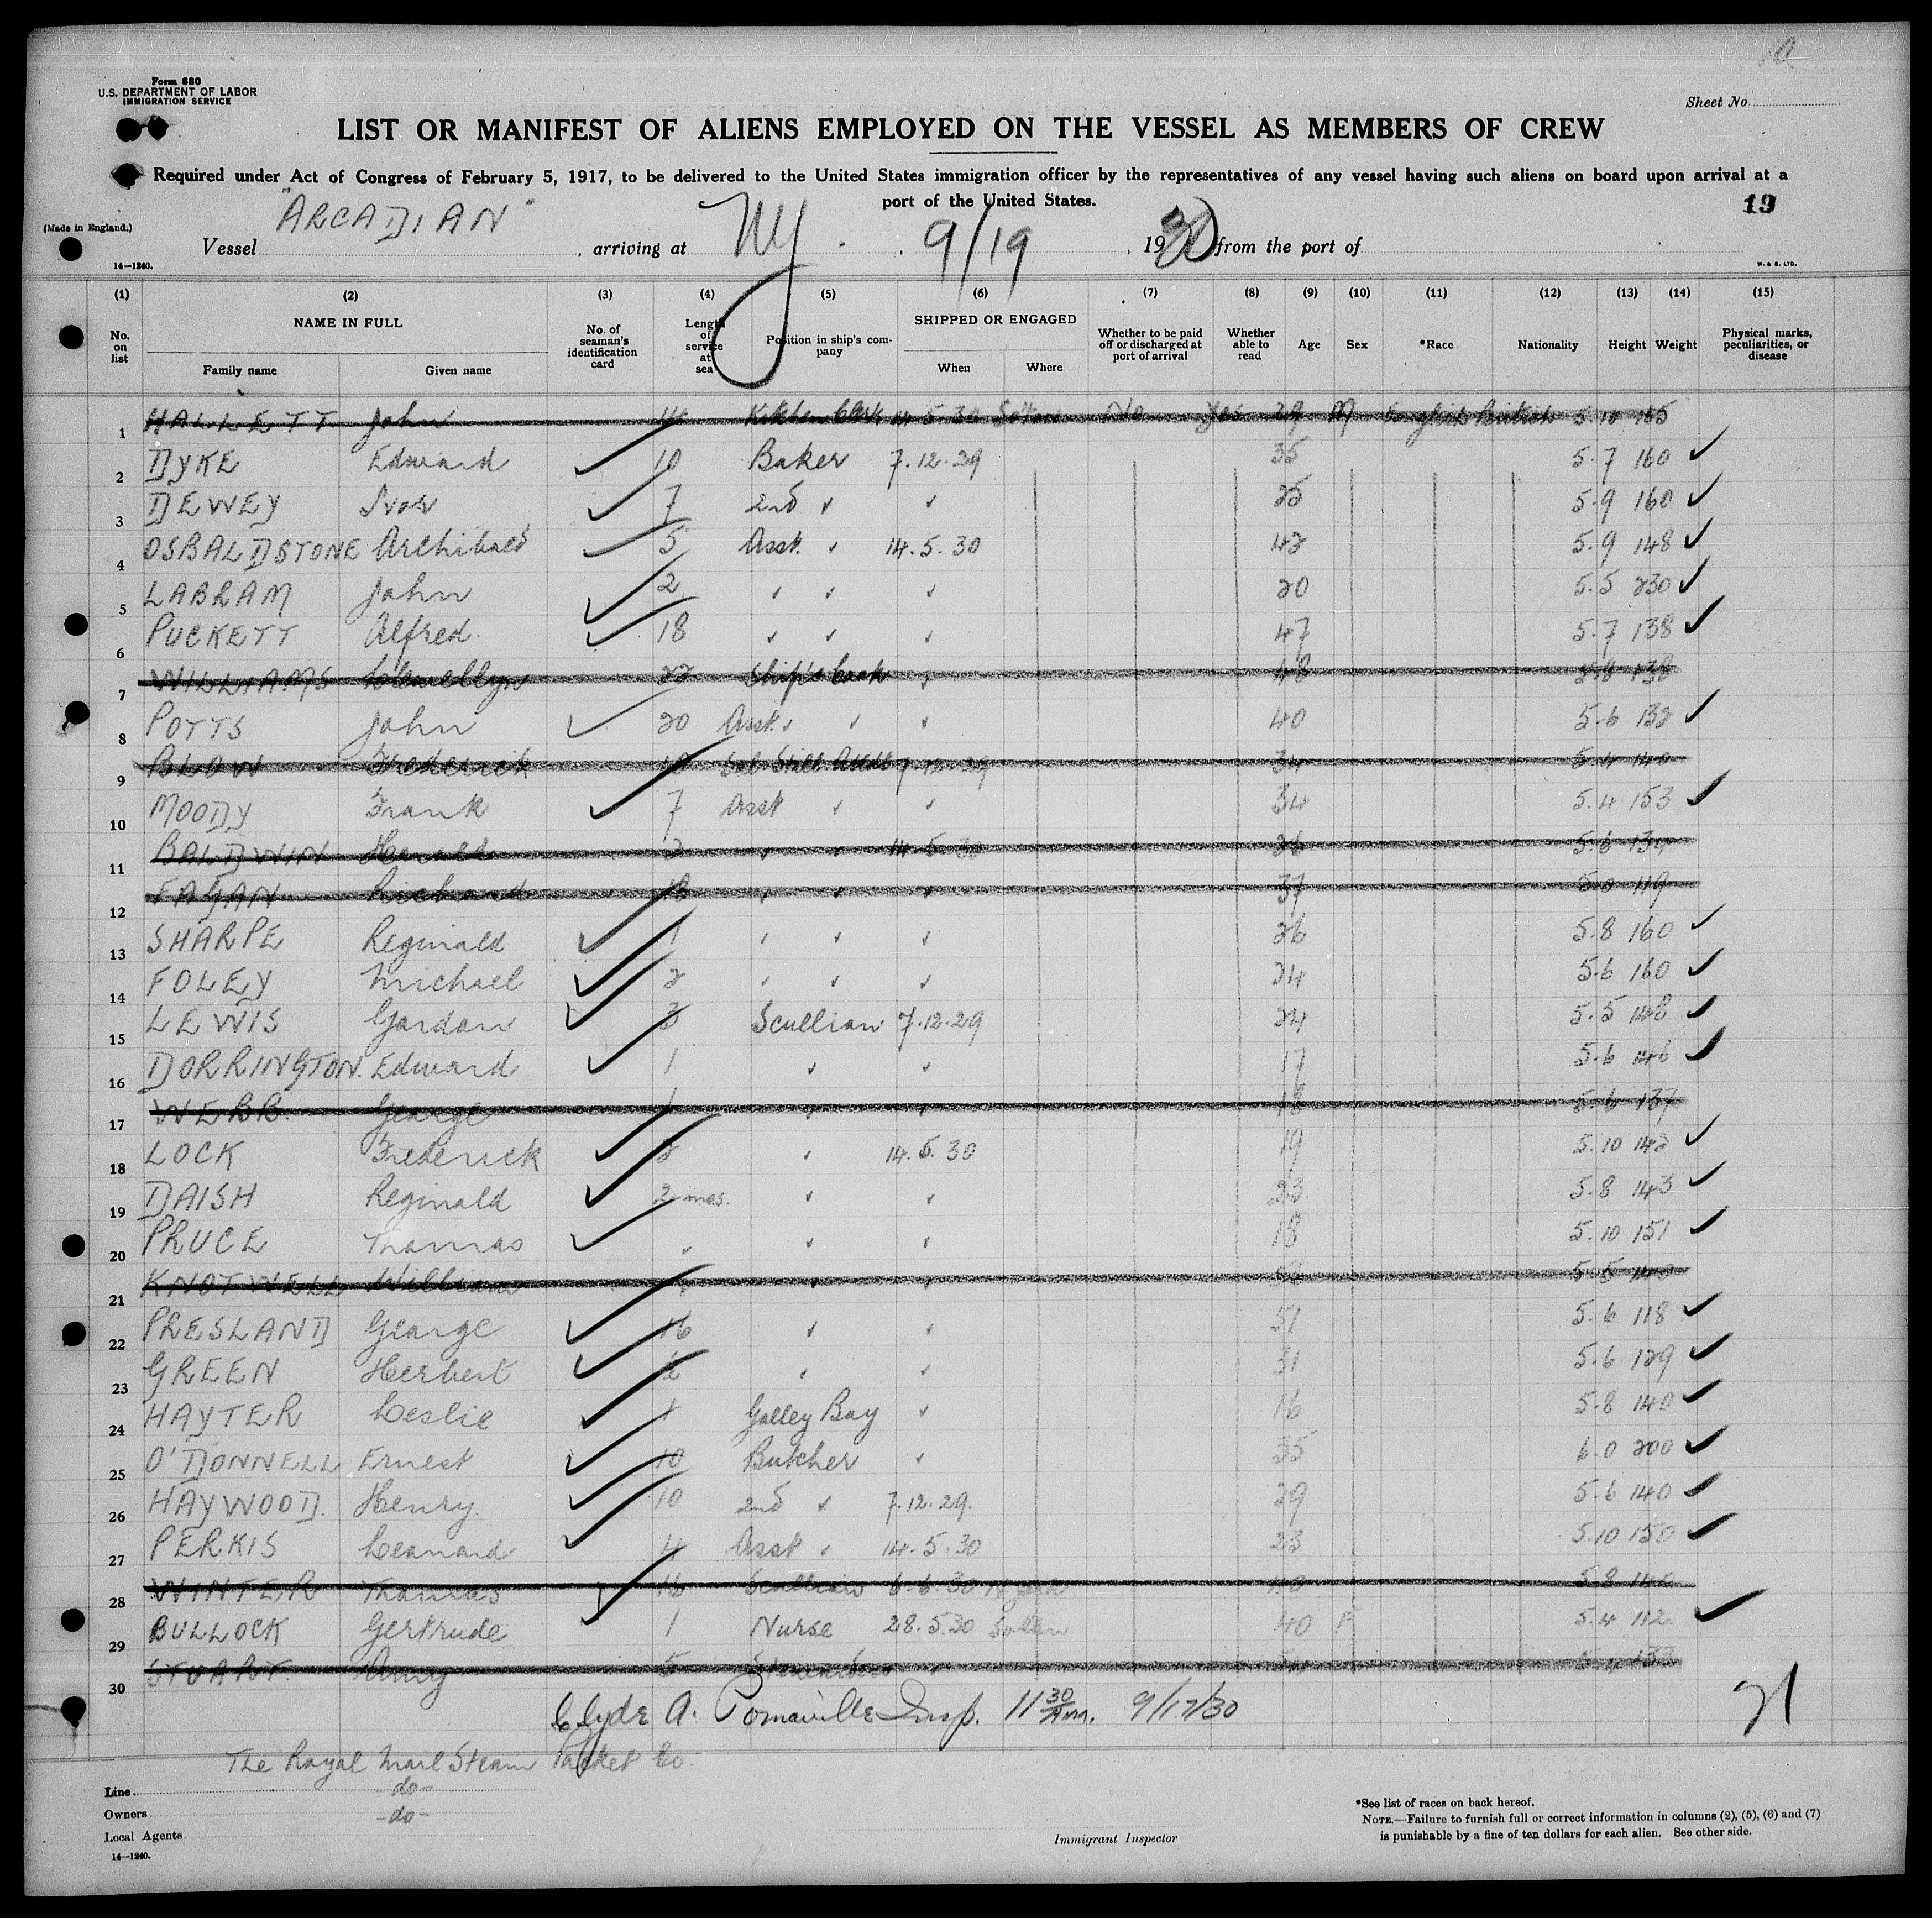 Form 680
U.S. DEPARTMENT OF LABOR
IMMIGRATION SERVICE
Sheet No.
LIST OR MANIFEST OF ALIENS EMPLOYED ON THE VESSEL AS MEMBERS OF CREW
Required under Act of Congress of February 5, 1917, to be delivered to the United States immigration officer by the representatives of any vessel having such aliens on board upon arrival at a
port of the United States.
19
(Made in England.)
Vessel "ARCADIAN", arriving at NY. 9/19, 1930 from the port of
14—1240.
W. & S. LTD.
(1) (2) (3) (4) (5) (6) (7) (8) (9) (10) (11) (12) (13) (14) (15)
No. on list NAME IN FULL Family name Given name No. of seaman's identification card Length of service at sea Position in ship's company SHIPPED OR ENGAGED When Where Whether to be paid off or discharged at port of arrival Whether able to read Age Sex *Race Nationality Height Weight Physical marks, peculiarities, or disease
1 HALLETT John Kitchen Clerk 14.5.30 Soton No Yes 29 M English British 5.10 155
2 DYKE Edward 10 Baker 7.12.29 35 5.7 160 ✓
3 DEWEY Ivor 7 2nd ✓ ✓ 25 5.9 160 ✓
4 OSBALDSTONE Archibald 5 Asst. ✓ 14.5.30 42 5.9 148 ✓
5 LABRAM John 2 ✓ ✓ ✓ 20 5.5 230 ✓
6 PUCKETT Alfred 18 ✓ ✓ ✓ 47 5.7 138 ✓
7 WILLIAMS Llewellyn 22 Ship's Cook ✓ 48
8 POTTS John 20 Asst. ✓ ✓ ✓ 40 5.6 132 ✓
9 BLOW Frederick 34 5.4 140
10 MOODY Frank 7 Asst ✓ ✓ 34 5.4 153 ✓
11 BALDWIN Harold 2 ✓ ✓ 14.5.30 26 5.6
12 FAGAN Richard ✓ ✓ ✓ 37 119
13 SHARPE Reginald 1 ✓ ✓ ✓ 26 5.8 160 ✓
14 FOLEY Michael 2 ✓ ✓ ✓ 24 5.6 160 ✓
15 LEWIS Gordon 3 Scullion 7.12.29 24 5.5 148 ✓
16 DORRINGTON Edward 1 ✓ ✓ 17 5.6 146 ✓
17 WEBB George 1 ✓ ✓ 18 5.6 137
18 LOCK Frederick 2 ✓ 14.5.30 19 5.10 142 ✓
19 DAISH Reginald 3 mos. ✓ ✓ 23 5.8 143 ✓
20 PRUCE Thomas ✓ ✓ 18 5.10 151 ✓
21 KNOTWELL William ✓ ✓ 5.5
22 PRESLAND George 16 ✓ ✓ 51 5.6 118 ✓
23 GREEN Herbert ✓ ✓ 31 5.6 129 ✓
24 HAYTER Leslie 1 Galley Boy ✓ 16 5.8 140 ✓
25 O'DONNELL Ernest 10 Butcher ✓ 35 6.0 200 ✓
26 HAYWOOD Henry 10 2nd ✓ 7.12.29. 29 5.6 140 ✓
27 PERKIS Leonard 4 Asst ✓ 14.5.30 23 5.10 150 ✓
28 WINTER Thomas 16 Scullion 6.6.30 40 5.8 140
29 BULLOCK Gertrude 1 Nurse 28.5.30 Soton 40 F 5.4 112 ✓
30 STUART Amy 5 Stewardess
Clyde A. Pomaville Insp. 11 30 AM. 9/19/30
21
The Royal Mail Steam Packet Co.
Line -do-
Owners -do-
Local Agents
14—1240.
Immigrant Inspector
*See list of races on back hereof.
NOTE.—Failure to furnish full or correct information in columns (2), (5), (6) and (7)
is punishable by a fine of ten dollars for each alien. See other side.